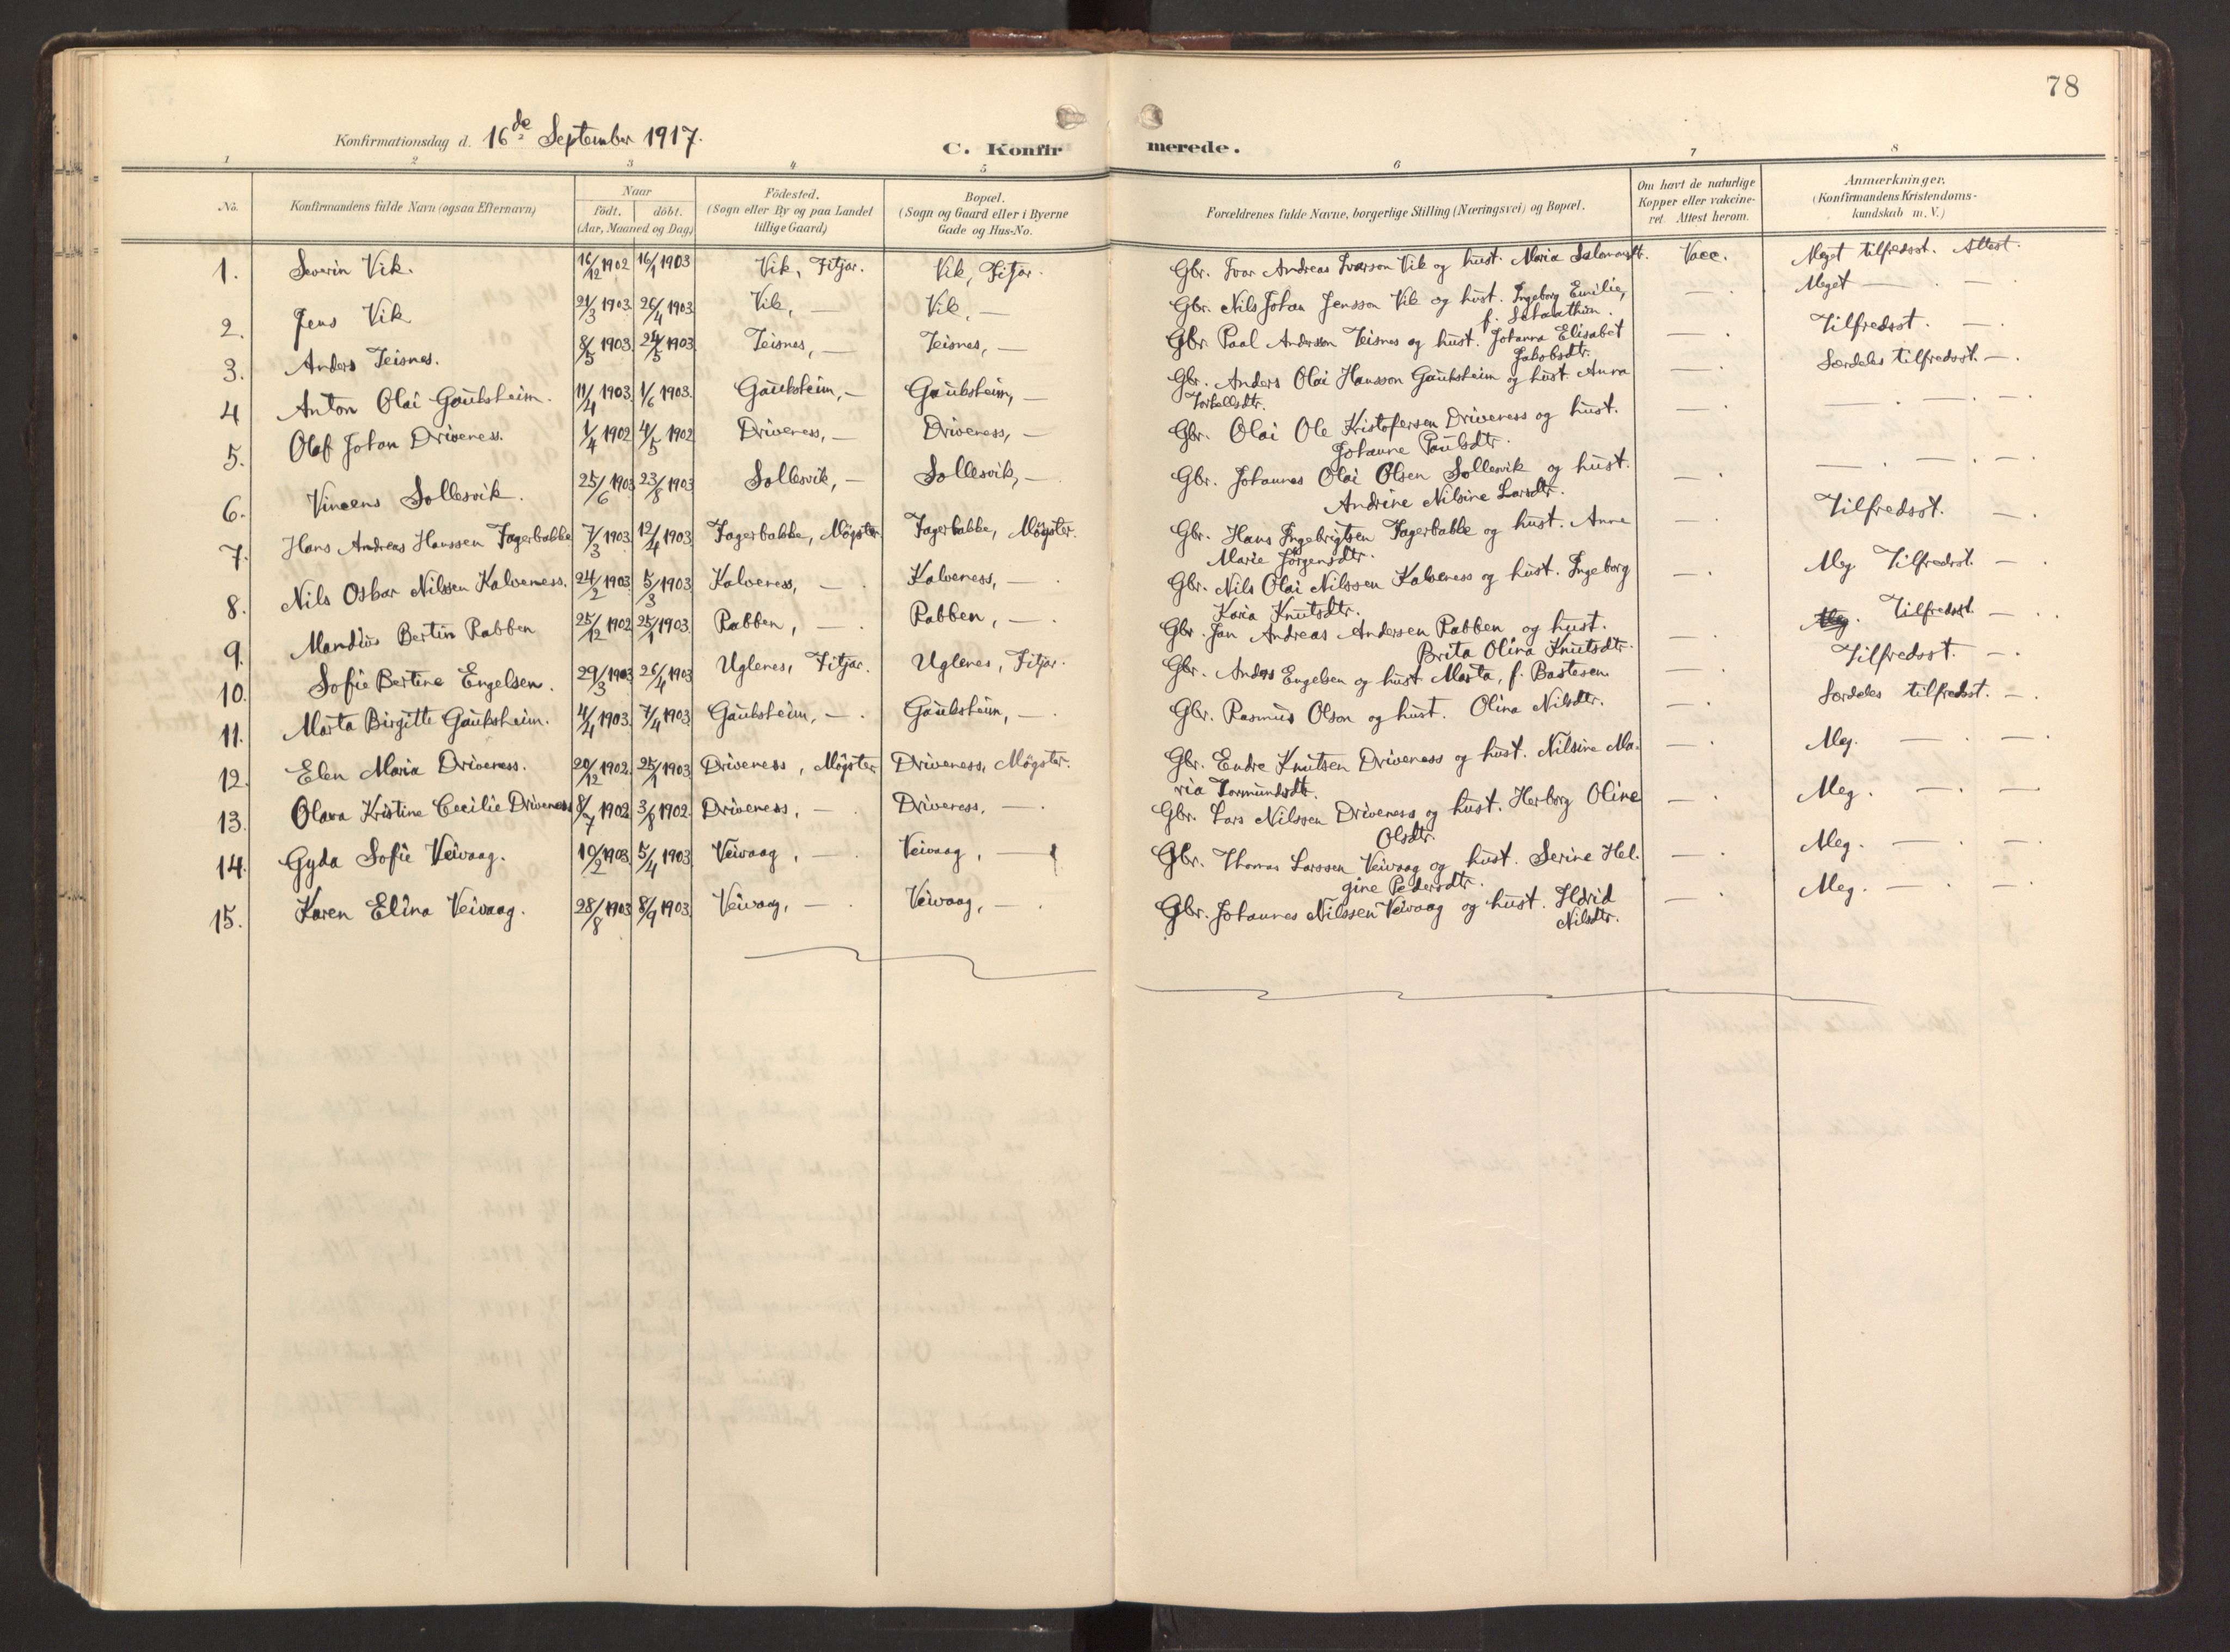 78
Konfirmationsdag d. 16de September 1917.
C. Konfirmerede.
1 2 3 4 5 6 7 8
No. Konfirmandens fulde Navn (ogsaa Efternavn) Naar født. døbt. (Aar, Maaned og Dag) Fødested. (Sogn eller By og paa Landet tillige Gaard) Bopæl. (Sogn og Gaard eller i Byerne Gade og Hus-No. Forældrenes fulde Navne, borgerlige Stilling (Næringsvei) og Bopæl. Om havt de naturlige Kopper eller vakcineret. Attest herom. Anmærkninger. (Konfirmandens Kristendomskundskab m. V.)
1. Severin Vik. 16/12 1902 16/1 1903 Vik, Fitjar. Vik, Fitjar. Gbr. Ivar Andreas Ivarson Vik og hust. Maria Salamonsdt. Vacc. Meget tilfredsst. Attest.
2. Jens Vik 21/3 1903 26/4 1903 Vik, — Vik, — Gbr. Nils Johan Jensson Vik og hust. Ingeborg Emilie, — . Meget — . —
f.
3. Anders Teisnes. 8/5 1903. 24/5 1903. Teisnes, — Teisnes, — Gbr. Paal Anderssen Teisnes og hust. Johanna Elisabet — . Tilfredsst. — .
Jakobsdtr.
4 Anton Olai Gauksheim. 11/4 1903. 1/6 1903. Gauksheim, — Gauksheim, — Gbr. Anders Olai Hansson Gauksheim og hust. Anna — . Særdeles tilfredsst. — .
Torkellsdtr.
5. Olaf Johan Driveness. 1/4 1902 4/5 1902 Driveness, — Driveness, — Gbr. Olai Ole Kristofersen Driveness og hust. — . — . — . — .
Johanne Paulsdtr.
6. Vincens Sollesvik. 25/6 1903 23/8 1903 Sollesvik, — Sollesvik, — . Gbr. Johannes Olai Olsen Sollesvik og hust. — . — . — . — .
Andrine Nilsine Larsdtr.
7. Hans Andreas Hanssen Fagerbakke 7/3 1903. 12/4 1903 Fagerbakke, Møgster. Fagerbakke, Møgster. Gbr. Hans Ingebrigtsen Fagerbakke og hust. Anne — . Tilfredsst. — .
Marie Jørgensdtr.
8. Nils Oskar Nilssen Kalveness. 24/2 1903 5/3 1903 Kalveness, — . Kalveness, — . Gbr. Nils Olai Nilssen Kalveness og hust. Ingeborg — . Meg Tilfredsst. — .
Karia Knutsdtr.
9. Mandius Bertin Rabben 25/12 1902 25/1 1903. Rabben, — . Rabben, — . Gbr. Jan Andreas Andersen Rabben og hust. — . Meg. Tilfredsst. — . .
Brita Olina Knutsdtr.
10. Sofie Bertine Engelsen. 29/3 1903 26/4 1903 Uglenes, Fitjar. Uglenes, Fitjar. Gbr. Anders Engelsen og hust Marta, f. Bastesen. — . Tilfredsst. — .
11. Marta Birgitte Gauksheim. 4/4 1903. 7/4 1903. Gauksheim, — . Gauksheim, — . Gbr. Rasmus Olson og hust. Olina Nilsdtr. — . Særdeles tilfredsst. — .
12. Elen Maria Driveness. 20/12 1902. 25/1 1903. Driveness, Møgster Driveness, Møgster. Gbr. Endre Knutsen Driveness og hust. Nilsine Ma- — . Meg. — . — .
ria Tormundsdt.
13. Olava Kristine Cecilie Driveness 8/7 1902. 3/8 1902. Driveness, — . Driveness, — . Gbr. Lars Nilssen Driveness og hust. Herborg Oline — . Meg. — . — .
Olsdtr.
14. Gyda Sofie Veivaag. 10/2 1903. 5/4 1903. Veivaag, — . Veivaag, — Gbr. Thomas Larssen Veivaag og hust. Serine Hel- — . Meg. — . — .
gine Pedersdtr.
15. Karen Elina Veivaag. 28/8 1903 8/9 1903. Veivaag, — . Veivaag, — . Gbr. Johannes Nilssen Veivaag og hust. Hdrid — . Meg. — . — .
Nilsdtr.